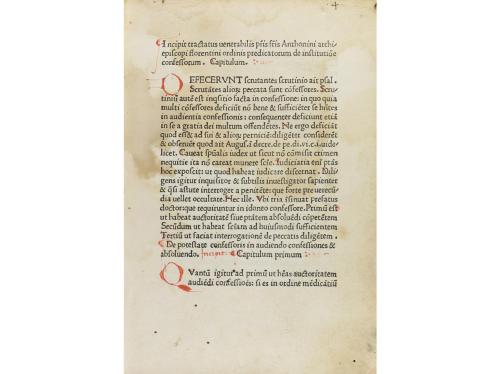 Incipit tractatus venerabilis p̃is fr̃is Anthonini archi-
episcopi florentini ordinis predicatorum de institutiõe
confessorum. Capitulum.
DEFECERVNT scrutantes scrutinio ait psal.
Scrutãtes alioꝝ peccata sunt cõfessores. Scru
tiniũ autẽ est inqsitio facta in confessione: in quo quia
multi cõfessores deficiũt nõ bene & sufficiẽter se habẽt
in audientia confessionis: consequenter deficiunt etiã
in se a gratia dei multum offendẽtes. Ne ergo deficiãt
quo ad sui & alioꝝ perniciẽ: diligẽter considerẽt
& obseruẽt quod ait Augus. i decre. de pe. di. vi. c. i. vide
licet. Caueat spũalis iudex ut sicut nõ cõmisit crimen
nequitie ita nõ careat munere sciẽ. Iudiciaria eni ptãs
hoc exposcit: ut quod habeat iudicare discernat. Dili
gens igitur inquisitor & subtilis inuestigator sapienter
& qsi astute interroget a penitẽte: quod forte pre uerecũ
dia uellet occultare. Hec ille. Vbi tria isinuat prefatus
doctor: que requiruntur in idoneo confessore. Primũ est
ut habeat auctoritatẽ siue ptãtem absoluẽdi cõpetẽtem
Secũdum ut habeat sciam ad huiusmodi sufficientem
Tertiũ ut faciat interrogationẽ de peccatis diligẽtem.
De potestate confessoris in audiendo confessiones &
absoluendo. Incipit. Capitulum primum
QVantũ igitur ad primũ ut hẽas auctoritatem
audiẽdi confessiões: si es in ordine mẽdicãtiũ